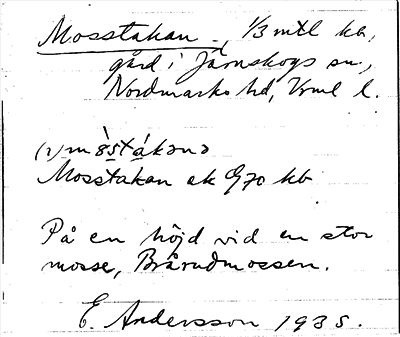 Mosstakan, 1/3 mtl kb,
gård i Järnskogs sn,
Nordmarks hd, Vrml l.
(2) m
Mosstakan ek G70 kb
På en höjd vid en stor
mosse, Brårudmossen.
E. Andersson 1935.